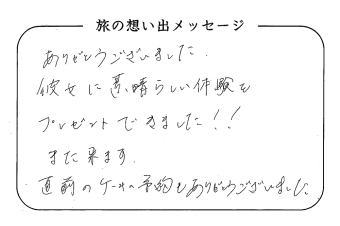 旅の想い出メッセージ
ありがとうございました.
彼女に素晴らしい体験を
プレゼントできました!!
また来ます.
直前のケーキの予約もありがとうございました